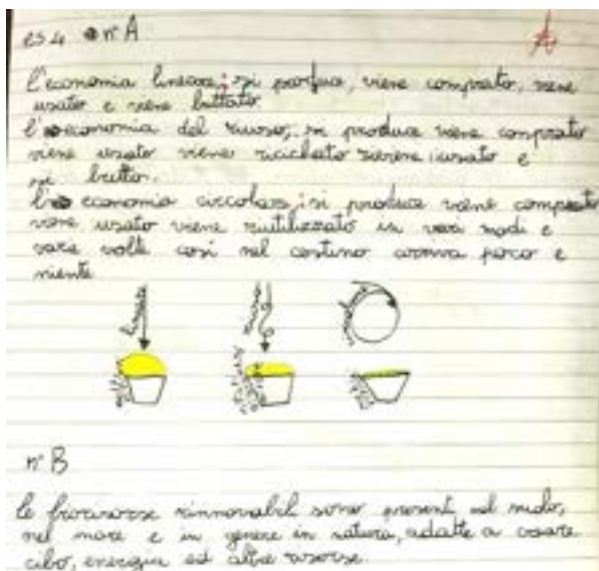 es.4 n°A
l'economia lineare; si produce, viene comprato, viene
usato e viene buttato
l'economia del riuso; si produce viene comprato
viene usato viene riciclato riusato e
si butta.
economia circolare; si produce viene comprato
viene usato viene riutilizzato in vari modi e
varie volte così nel cestino arriva poco e
niente
n°B
le rinnovabil sono present nel
nel mare e in genere in natura, adatte a creare
cibo, energia ed altre risorse.